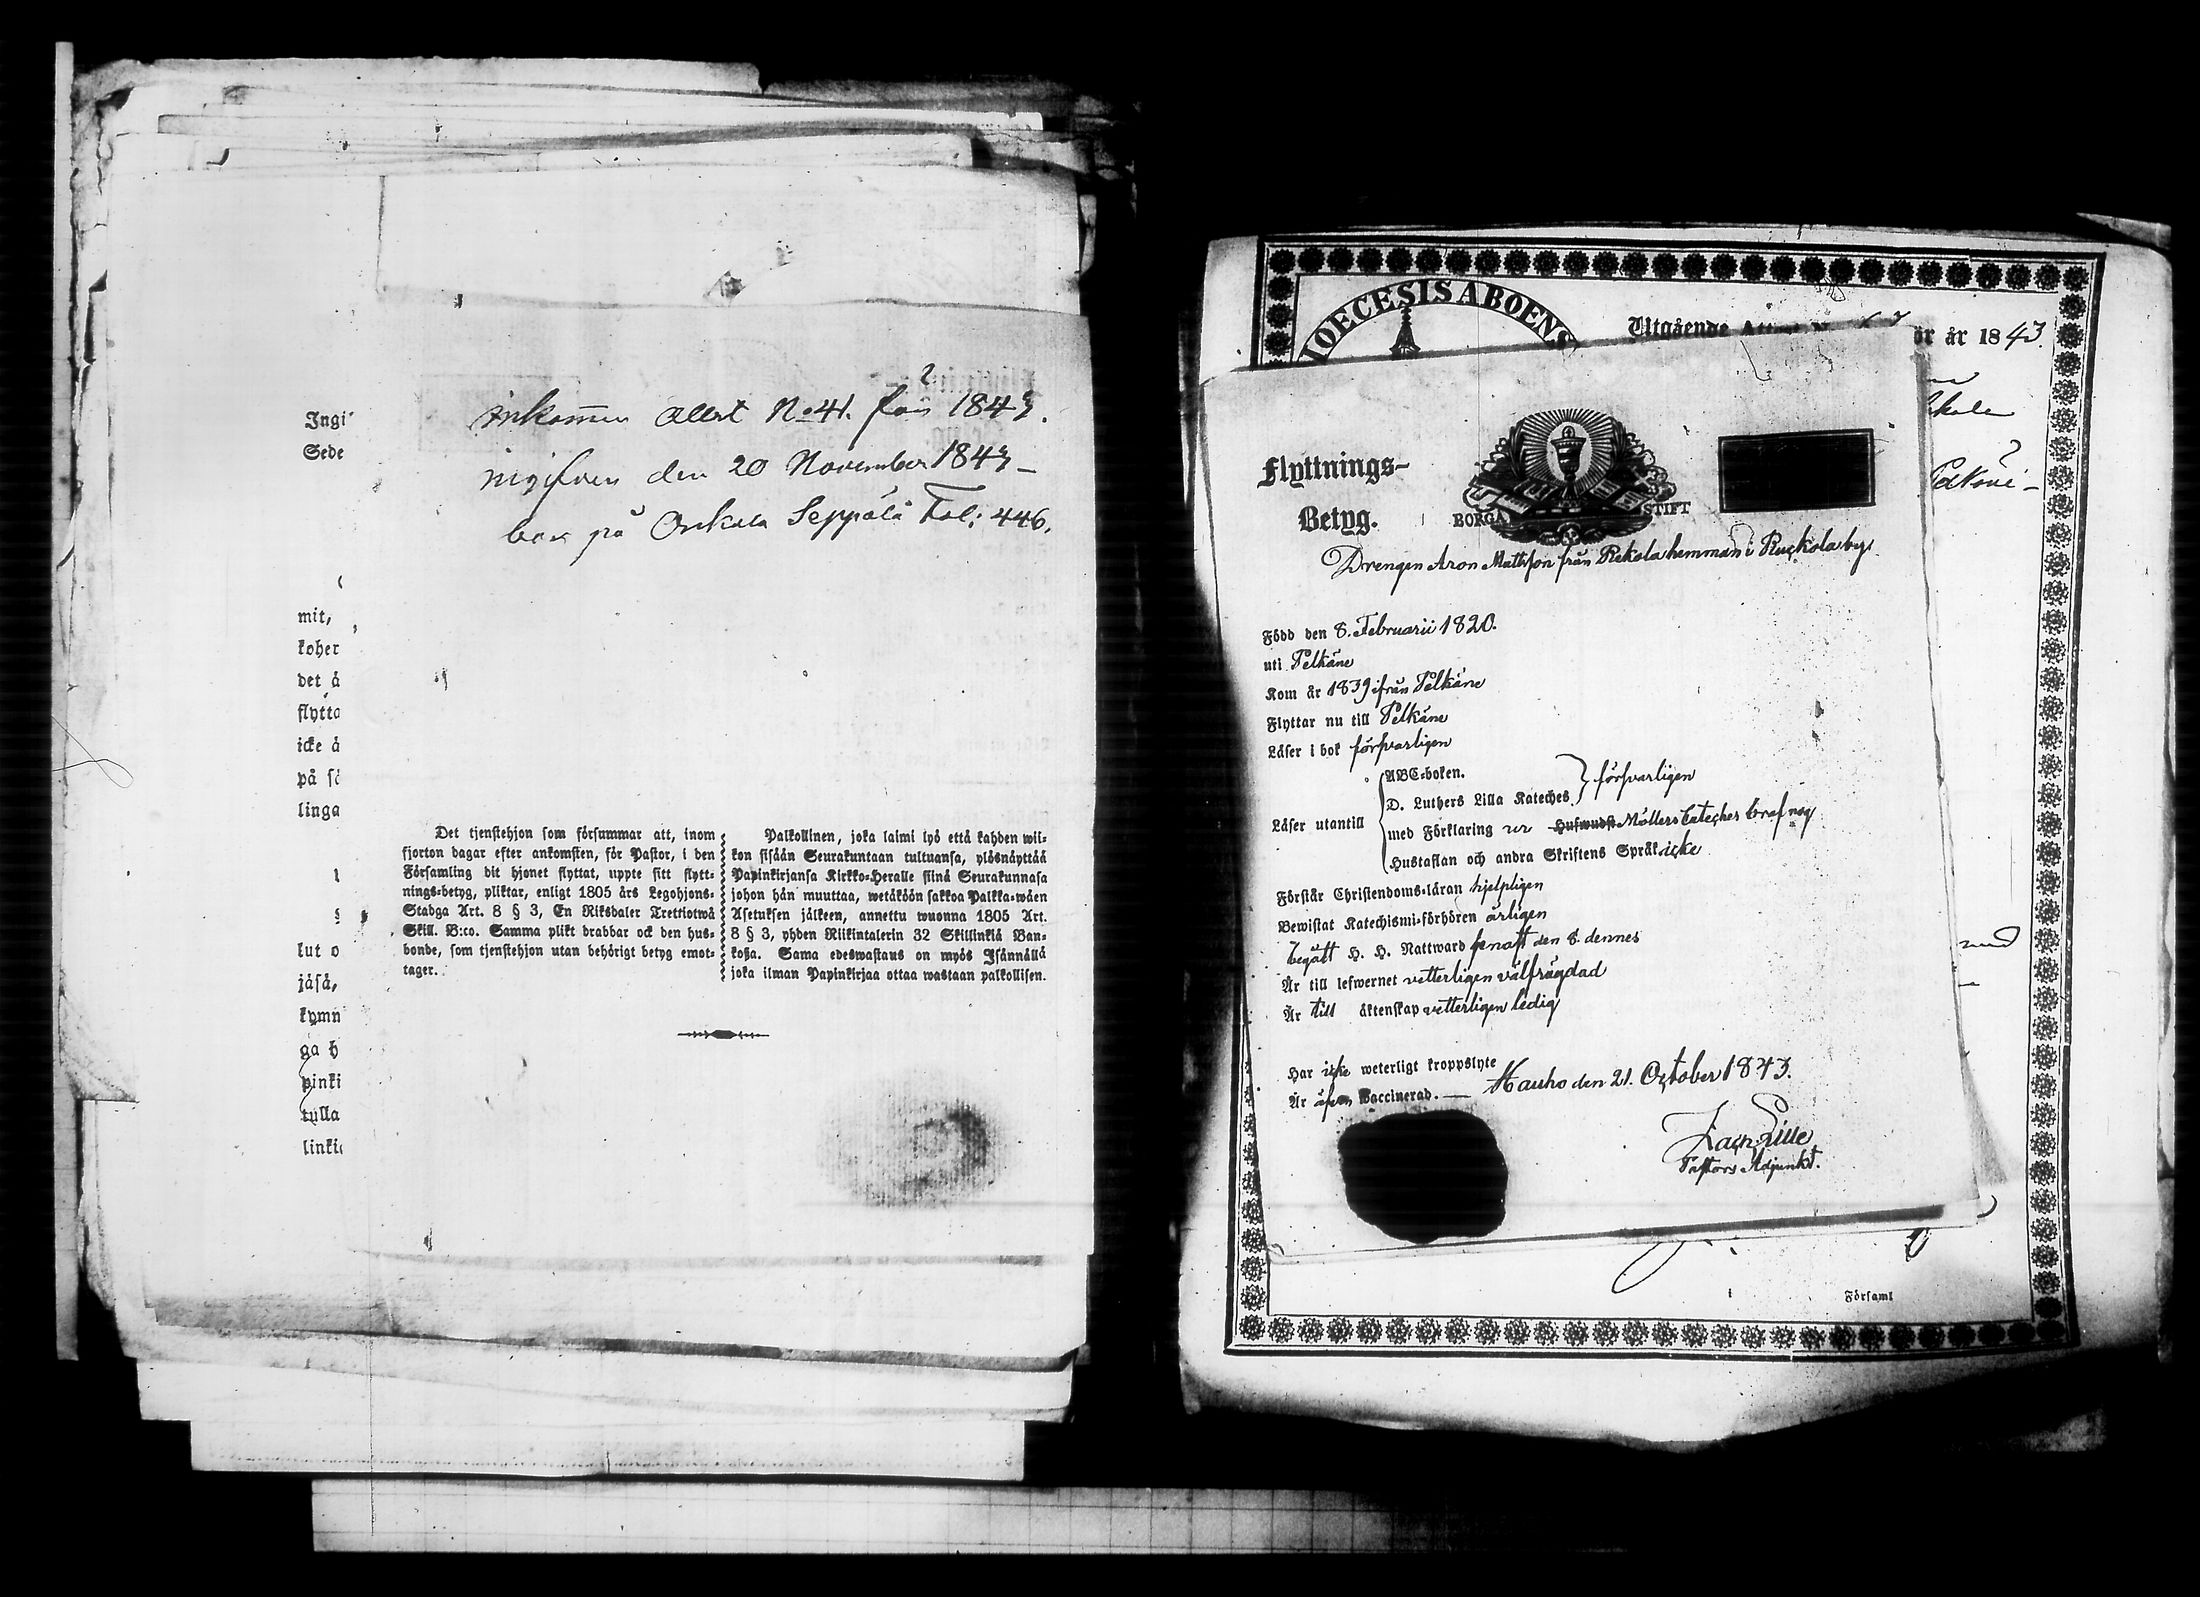 Ingi
Sede
mit,
koher
det å
flytta
icke å
på så
linga
lut o
jäsä,
kymn
ga h
pinki
tulla
linki
inkommen Attest No 41. för 1843.
ingifven den 20 November 1843 –
bor på Onkala Seppälä Fol: 446.
Det tjenstehjon som försummar att, inom
fjorton dagar efter ankomsten, för Pastor, i den
Församling dit hjonet flyttat, uppte sitt flytt-
nings-betyg, pliktar, enligt 1805 års Legohjons-
Stadga Art. 8 § 3, En Riksdaler Trettiotwå
Skill. B:co. Samma plikt drabbar ock den hus-
bonde, som tjenstehjon utan behörigt betyg emot-
tager.
Palkollinen, joka laimi lyö että kahden wii-
kon sisään Seurakuntaan tultuansa, ylösnäyttää
Papinkirjansa Kirkko-Heralle siinä Seurakunnasa
johon hän muuttaa, wetäköön sakkoa Palkka-wäen
Asetuksen jälkeen, annettu wuonna 1805 Art.
8 § 3, yhden Riikintalerin 32 Skillinkiä Ban-
koßa. Sama edeswastaus on myös Isännällä
joka ilman Papinkirjaa ottaa wastaan palkollisen.
DIOECESIS ABOENS
Utgående
ör år 1843
Flyttnings-
Betyg.
BORGÅ STIFT
Drengen Aron Mattsson från Rekola hemman i Ruckola by.
Född den 8. Februarii 1820.
uti Pelkäne
Kom år 1839 ifrån Pelkäne
Flyttar nu till Pelkäne
Läser i bok försvarligen
Läser utantill
ABC-boken.
D. Luthers Lilla Kateches } försvarligen
med Förklaring Möllers Cateches
Hustaflan och andra Skriftens Språk icke
Förstår Christendoms-läran hjelpligen
Bewistat Katechismi-förhören årligen
begått H. H. Nattward senast den 8. dennes
Är till lefwernet vetterligen välfrägdad
Är till äktenskap vetterligen ledig
Har icke weterligt kroppslyte
Är äfven Vaccinerad. —
Hauho den 21. October 1843.
Zach. Lille
Pastors Adjunkt.
Församl